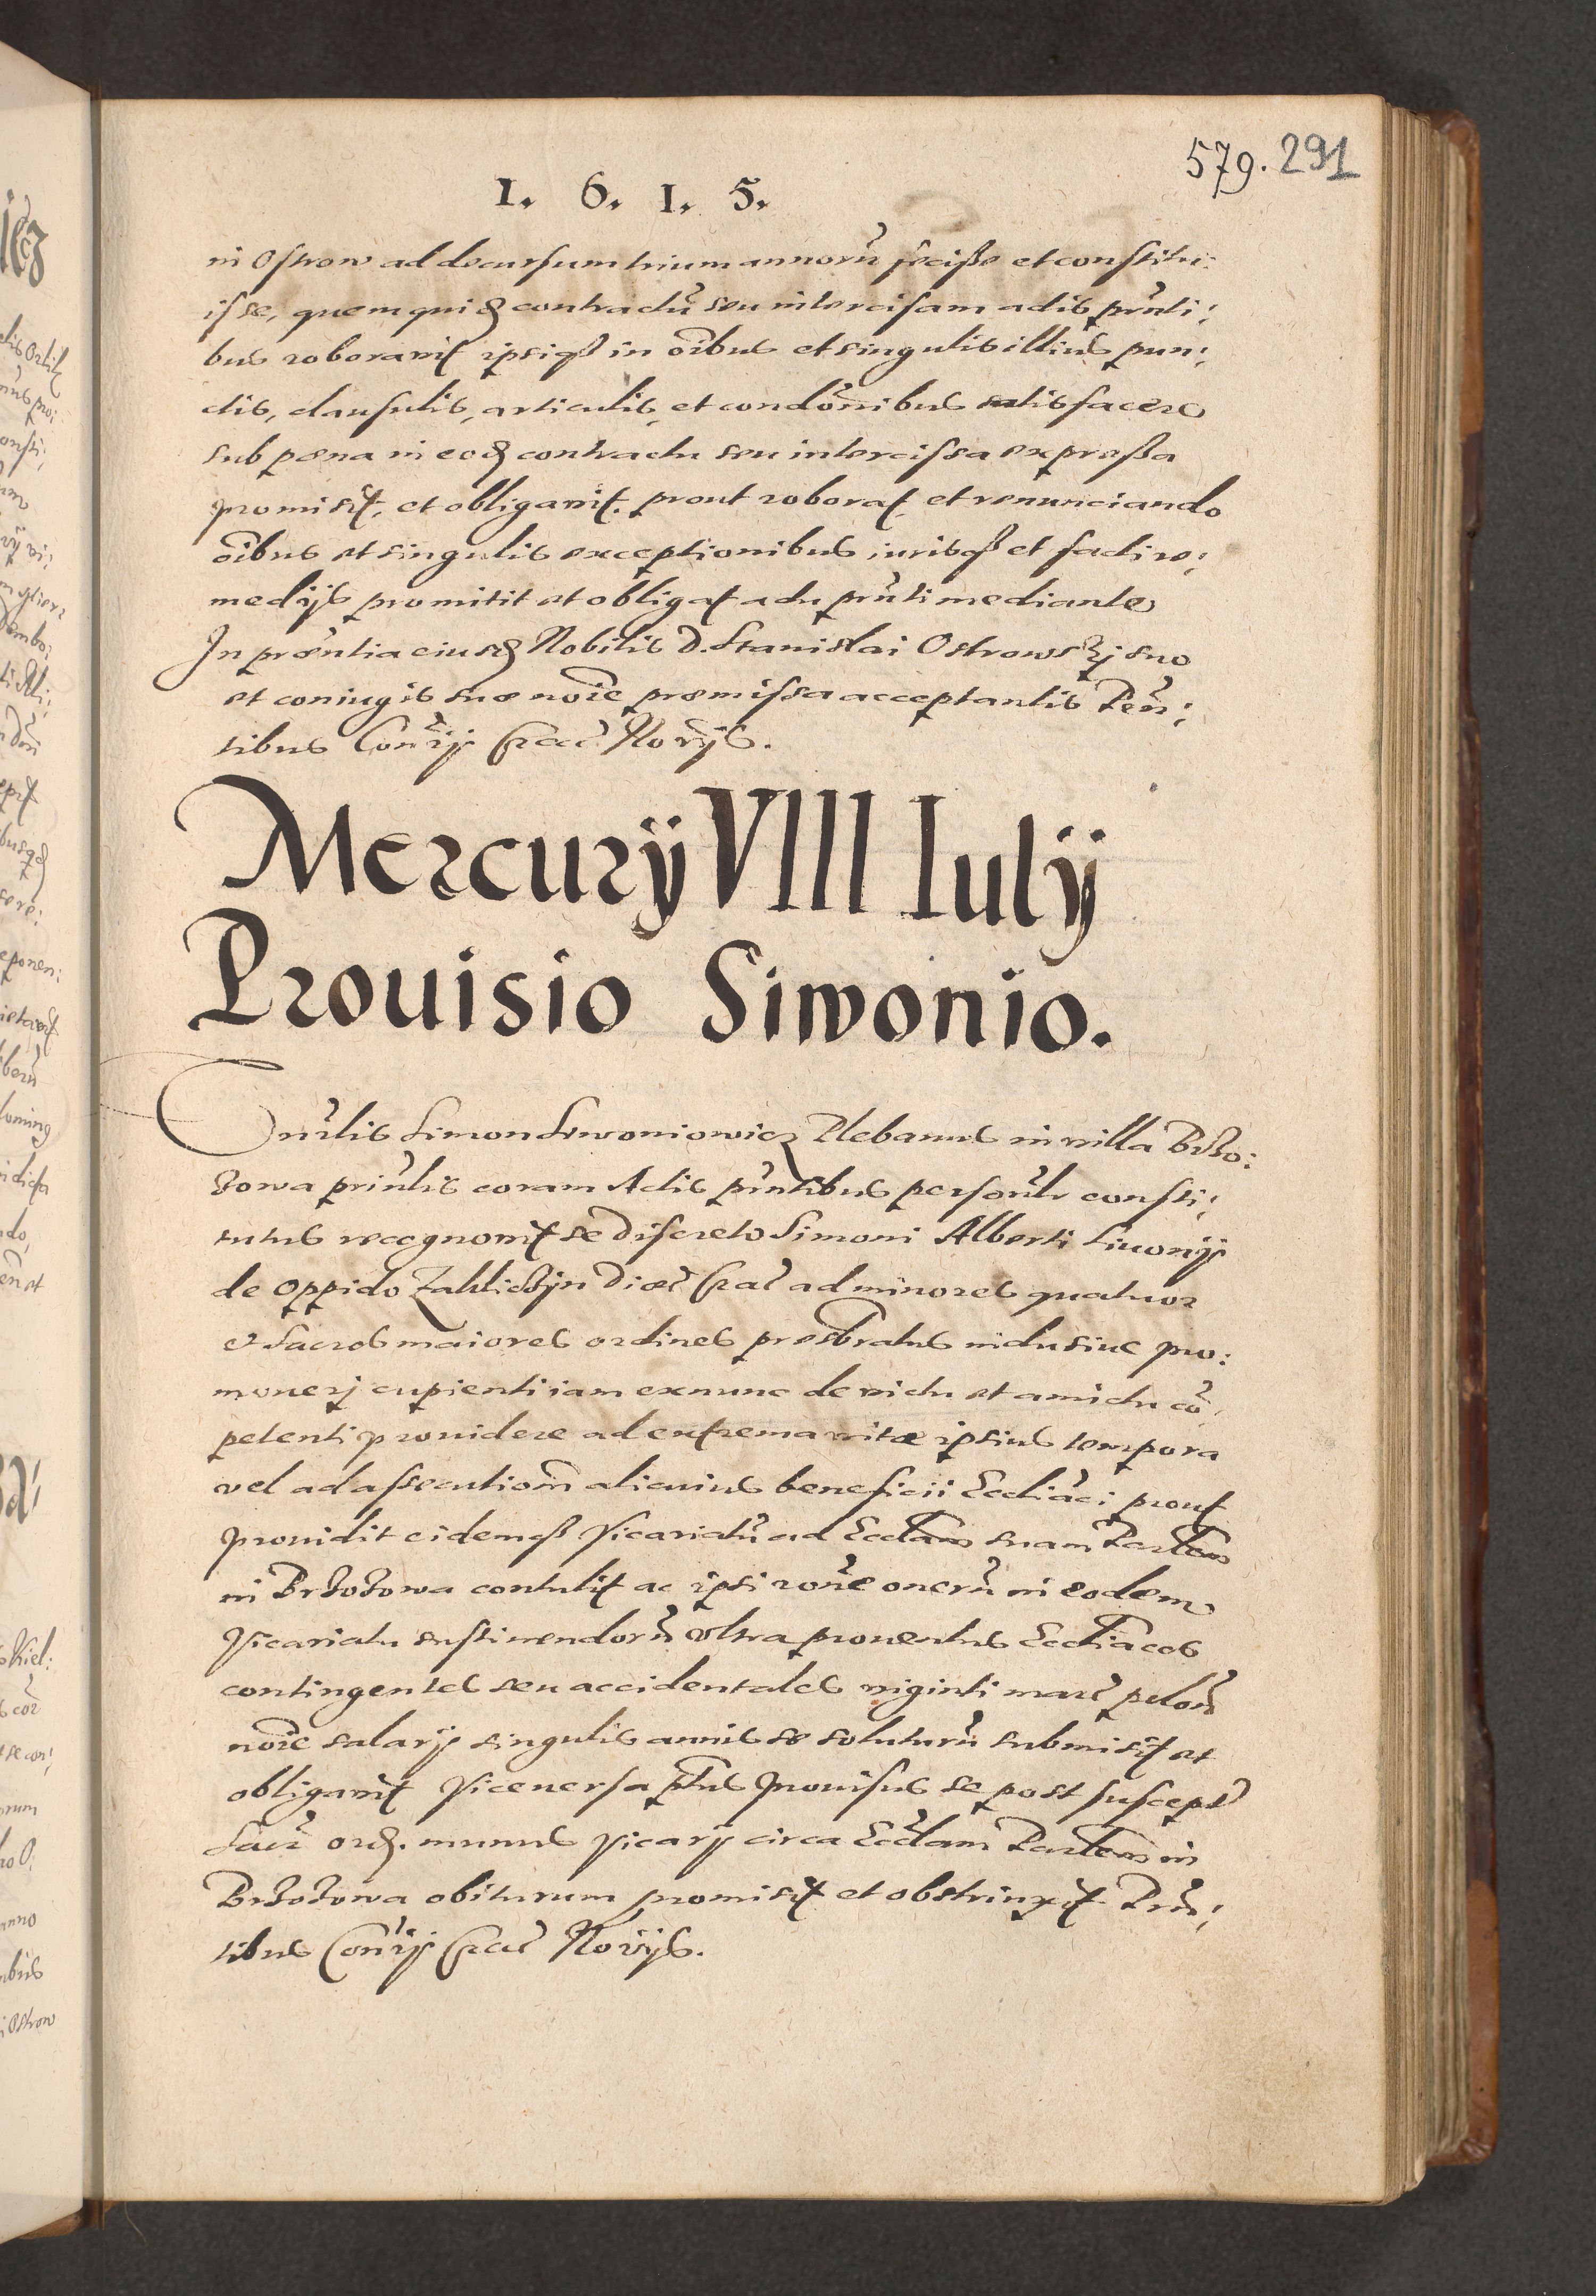 579. 291
1. 6. 1. 5.
in Ostrow ad decursum trium annorũ fecisse et constitu:
isse, quem quid contractũ seu intercisam actis prñti:
bus roboravit ipsiq in oibus et singulis illius pun:
ctis, clausulis, articulis, et condõnibus satisfacere
sub pœna in eod contractu seu intercissa expressa
promisit, et obligavit. prout roborat et renunciando
oibus et singulis exceptionibus iurisq et facti re:
medijs promitit et obligat actu prñti mediante
In præntia eiusd Nobilis D. Stanislai Ostrowskj suo
et coniugis suæ noie præmissa acceptantis Pñ:
tibus Conrij Crac Norijs.
Mercurij VIII Iulij
Prouisio Siwonio.
Onrlis Simon Siwoniowicz Plebanus in villa Brzo:
zowa priñlis coram Actis prñtibus persoñlr consti:
tutus recognovit se Discreto Simoni Alberti Siwonij
de Oppido Zakliczÿn Dioec Crac ad minores quatuor
et sacros maiores ordines presbratus inclusiue pro:
moverj cupienti iam exnunc de victu et amictu cõ:
petenti providere ad extrema vitæ ipsius tempora
vel ad assecutioem alicuius beneficii Ecclïaci prout
providit eidemq Vicariatũ ad Ecclam suam Parlem
in Brzozowa contulit ac ipsi roñe onerũ in eodem
Vicariatu sustinendorũ ultra proventus Ecclïacos
contingentes seu accidentales viginti marc polon
noie salarij singulis annis se soluturũ submisit et
obligavit Viceversa ptus Provisus se post suscept
Sacr ord. munus Vicarij circa Ecclam Parlem in
Brzozowa obiturum promisit et obstrinxit Prñ:
tibus Conrij Crac Norijs.